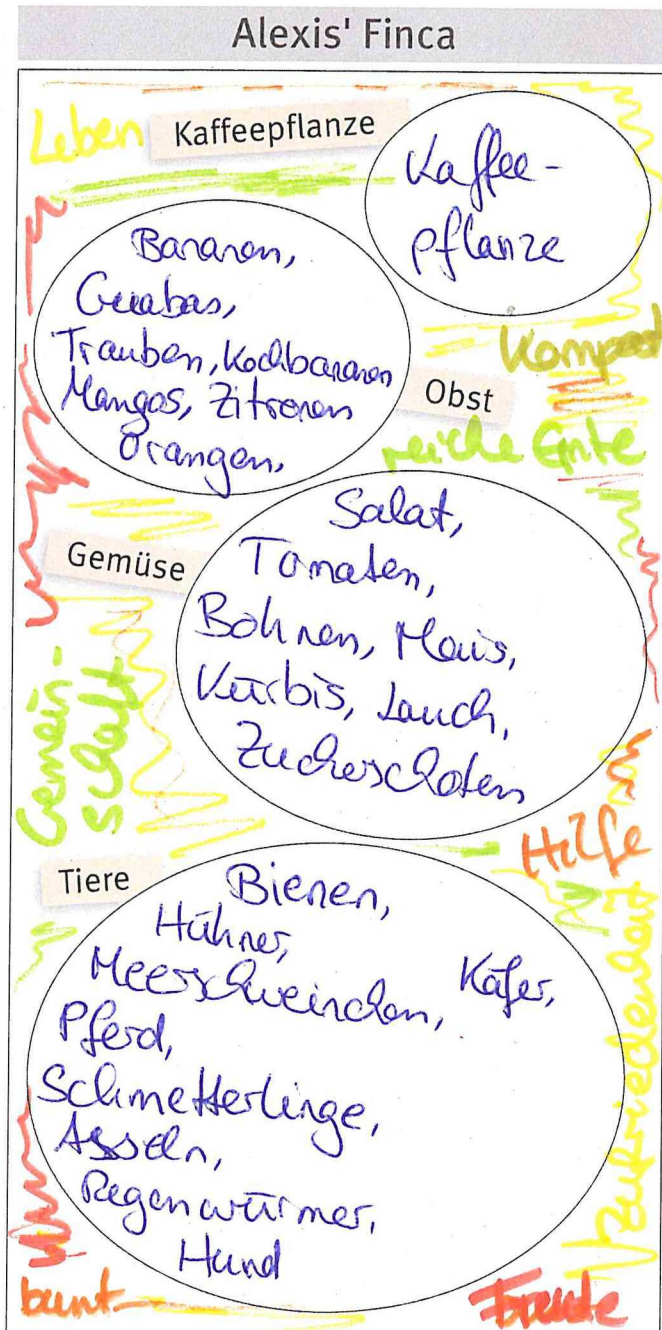 Alexis' Finca
Leben
Kaffeepflanze
Kaffee-
pflanze
Bananen,
Guabas,
Trauben, Kochbananen
Mangos, Zitronen
Orangen,
Kompost
Obst
reiche Ernte
Gemüse
Salat,
Tomaten,
Bohnen, Mais,
Kürbis, Lauch,
Zuckerschoten
Gemein-
schaft
Hilfe
Tiere
Bienen,
Hühner,
Meerschweinchen, Käfer,
Pferd,
Schmetterlinge,
Asseln,
Regenwürmer,
Hund
Zufriedenheit
bunt
Freude